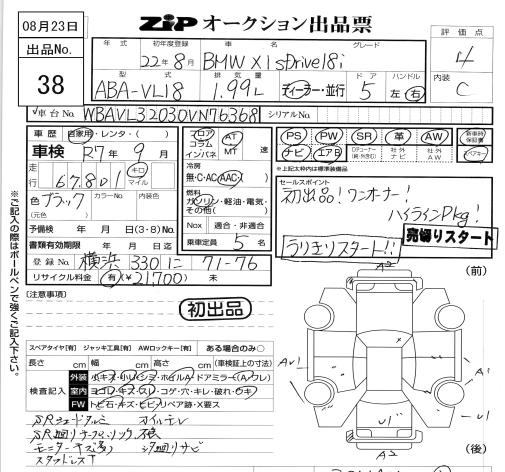 08月23日
ZIP オークション出品票
出品No.
38
年式
初年度登録
車名
グレード
評価点
22年8月
BMW X1 sDrive18i
4
型式
排気量
ドア
ハンドル
内装
ABA-VL18
1.99L
ディーラー・並行
5
左・右
C
車台No.
WBAVL32030VN76368
シリアルNo.
車歴
自家用・レンタ・( )
車検
R7年9月
走行
67,801
キロ
マイル
色
ブラック
カラーNo.
内装色
(元色 )
予備検 年 月 日(3・8)No.
書類有効期限 年 月 日迄
登録No.
横浜 330 に 71-76
リサイクル料金 有 (¥21,700) 未
フロア
コラム
インパネ
AT
MT
速
冷房
無・C・AC・AAC
燃料
ガソリン・軽油・電気・
その他( )
Nox 適合・非適合
乗車定員 5 名
PS
PW
SR
革
AW
新車時
保証書
ナビ
エアB
社外
ナビ
社外
AW
スペアキー
*上記太枠内は標準装備品
セールスポイント
初出品!ワンオーナー!
ハイラインPkg!
売切りスタート
うりきりスタート!!
※ご記入の際はボールペンで強くご記入下さい。
(注意事項)
初出品
スペアタイヤ[有] ジャッキ工具[有] AWロックキー[有] ある場合のみ○
長さ cm 幅 cm 高さ cm (車検証上の寸法)
検査記入
外装
小キズ・小凹・シミ・ホイルA・ドアミラー(A・ワレ)
室内
ヨゴレ・キズ・スレ・コゲ・穴・キレ・破れ・ウキ
FW
トビ石・キズ・ヒビ・リペア跡・X要ス
(前)
A2
AU1
A1
U1
U1
A2
(後)